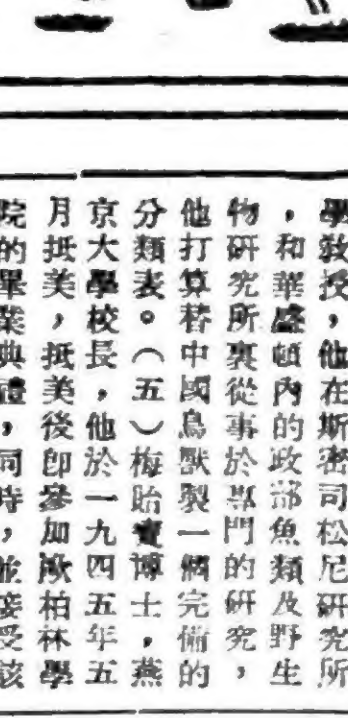 學敎授，他在斯密司松尼研究所
，和華盛頓內的政部魚類及野生
物研究所裏從事於專門的研究，
他打算替中國鳥獸製一個完備的
分類表。（五）梅貽寶博士，燕
京大學校長，他於一九四五年五
月抵美，抵美後卽參加歐柏林學
院的畢業典禮，同時，並接受該